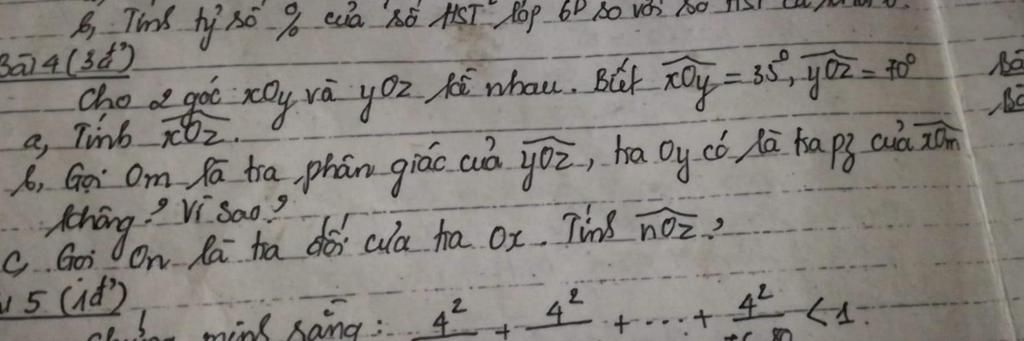 b, Tính tỷ số % của số HST lớp 6D so với số HST
Bài 4 (3đ)
Cho 2 góc xOy và yOz kề nhau. Biết xOy = 35°, yOz = 70°
a, Tính xOz.
b, Gọi Om là tia phân giác của yOz, tia Oy có là tia pg của xOm
không? Vì sao?
c, Gọi On là tia đối của tia Ox. Tính nOz?
5 (1đ)
minh rằng: 4² + 4² + ... + 4² < 1.